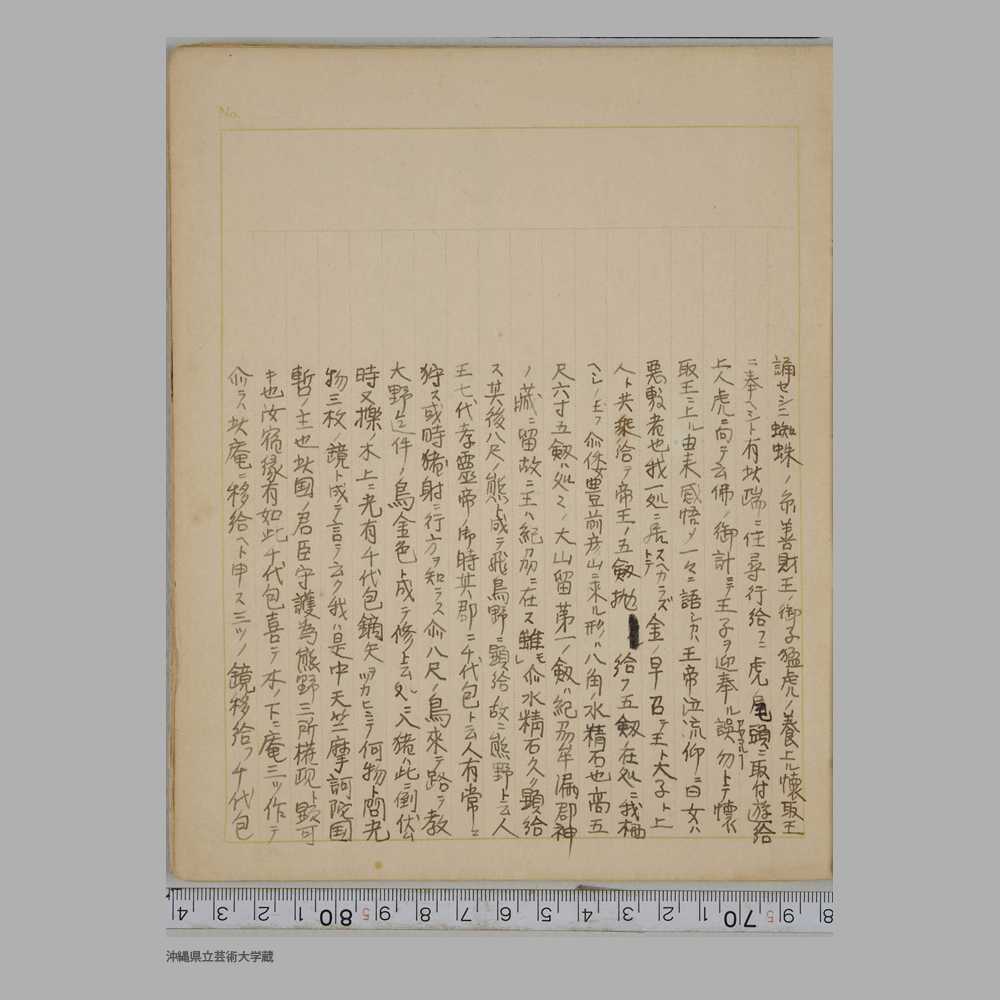 No.
誦セシニ蜘蛛ノ糸善財王ノ御子猛虎ノ養上ル懐取王
ニ奉ヘシト有此端ニ住尋行給フニ虎ノ尾頭ニ取付遊給
上人虎ニ向テ云佛ノ御計ニテ王子ヲ迎奉ル誤勿トテ懐
取王ニ上ル由来感悟メ一々ニ語シカハ王帝泣流仰ニ曰女ハ
悪敷者也我一処ニ居スヘカラズトテ金ノ早召テ王ト大子ト上
人ト共乗給テ帝王ノ五剱抛給フ五剱在処ニ我栖
ヘシノ玉フ尒後豊前彦山ニ来ル形ハ八角ノ水精石也高五
尺六寸五剱ハ処々ノ大山留第一ノ剱ハ紀刕牟漏郡神
ノ藏ニ留故ニ王ハ紀刕ニ在ス雖モ尒水精石久シ顕給
ス其後八尺ノ熊ト成テ飛鳥野ニ顕給故ニ熊野ト云人
王七代孝霊帝ノ御時其郡ニ千代包ト云人有常ニ
狩ス或時猪射ニ行方ヲ知ラス尒八尺ノ鳥来テ路ヲ教
大野迄件ノ鳥金色ト成テ修ト云処ニ入猪ハ此ニ倒伏
時又櫟ノ木上ニ光有千代包鏑矢ヲツカヒニテ何物ト問光
物三枚ノ鏡ト成テ言テ云ク我ハ是中天竺摩訶陀国
暫ノ主也此国ノ君臣守護為熊野三所権現ト顕可
キ也汝宿縁有如此千代包喜テ木ノ下ニ庵三ツ作テ
尒ラス此庵ニ移給ヘト申ス三ツノ鏡移給フ千代包
4 3 2 1 80 9 8 7 6 5 4 3 2 1 70 9 8
沖縄県立芸術大学蔵